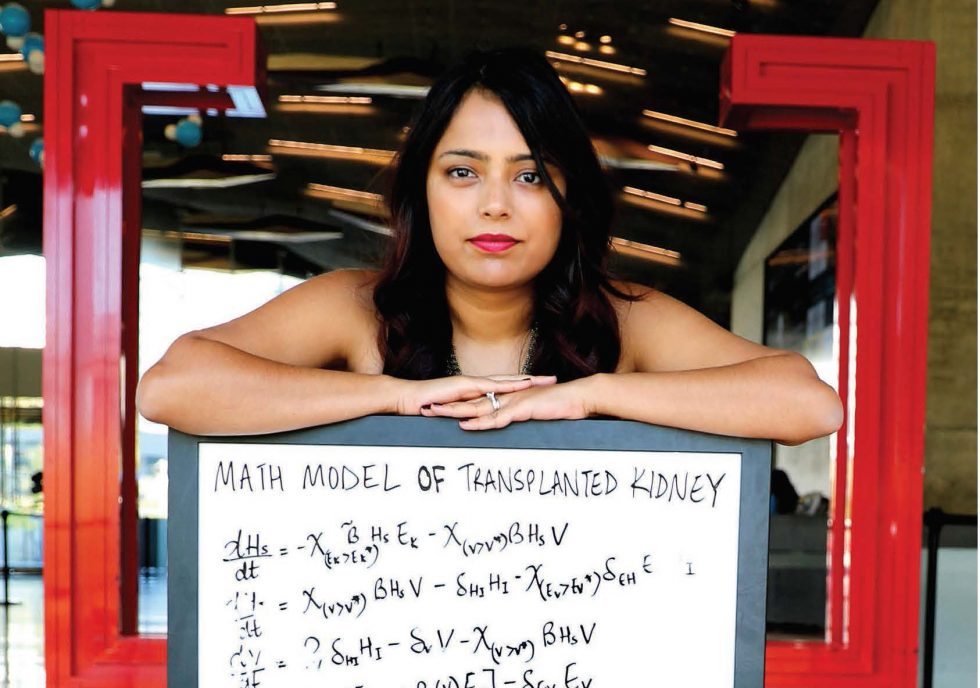 MATH MODEL OF TRANSPLANTED KIDNEY
dHs/dt = -χ(Ek>Ek*) β̃ Hs Ek - χ(v>v*) β Hs V
= χ(v>v*) β Hs V - δHI HI - χ(Ev>Ev*) δEH E I
= δHI HI - δv V - χ(v>v*) β Hs V
- δEv Ev